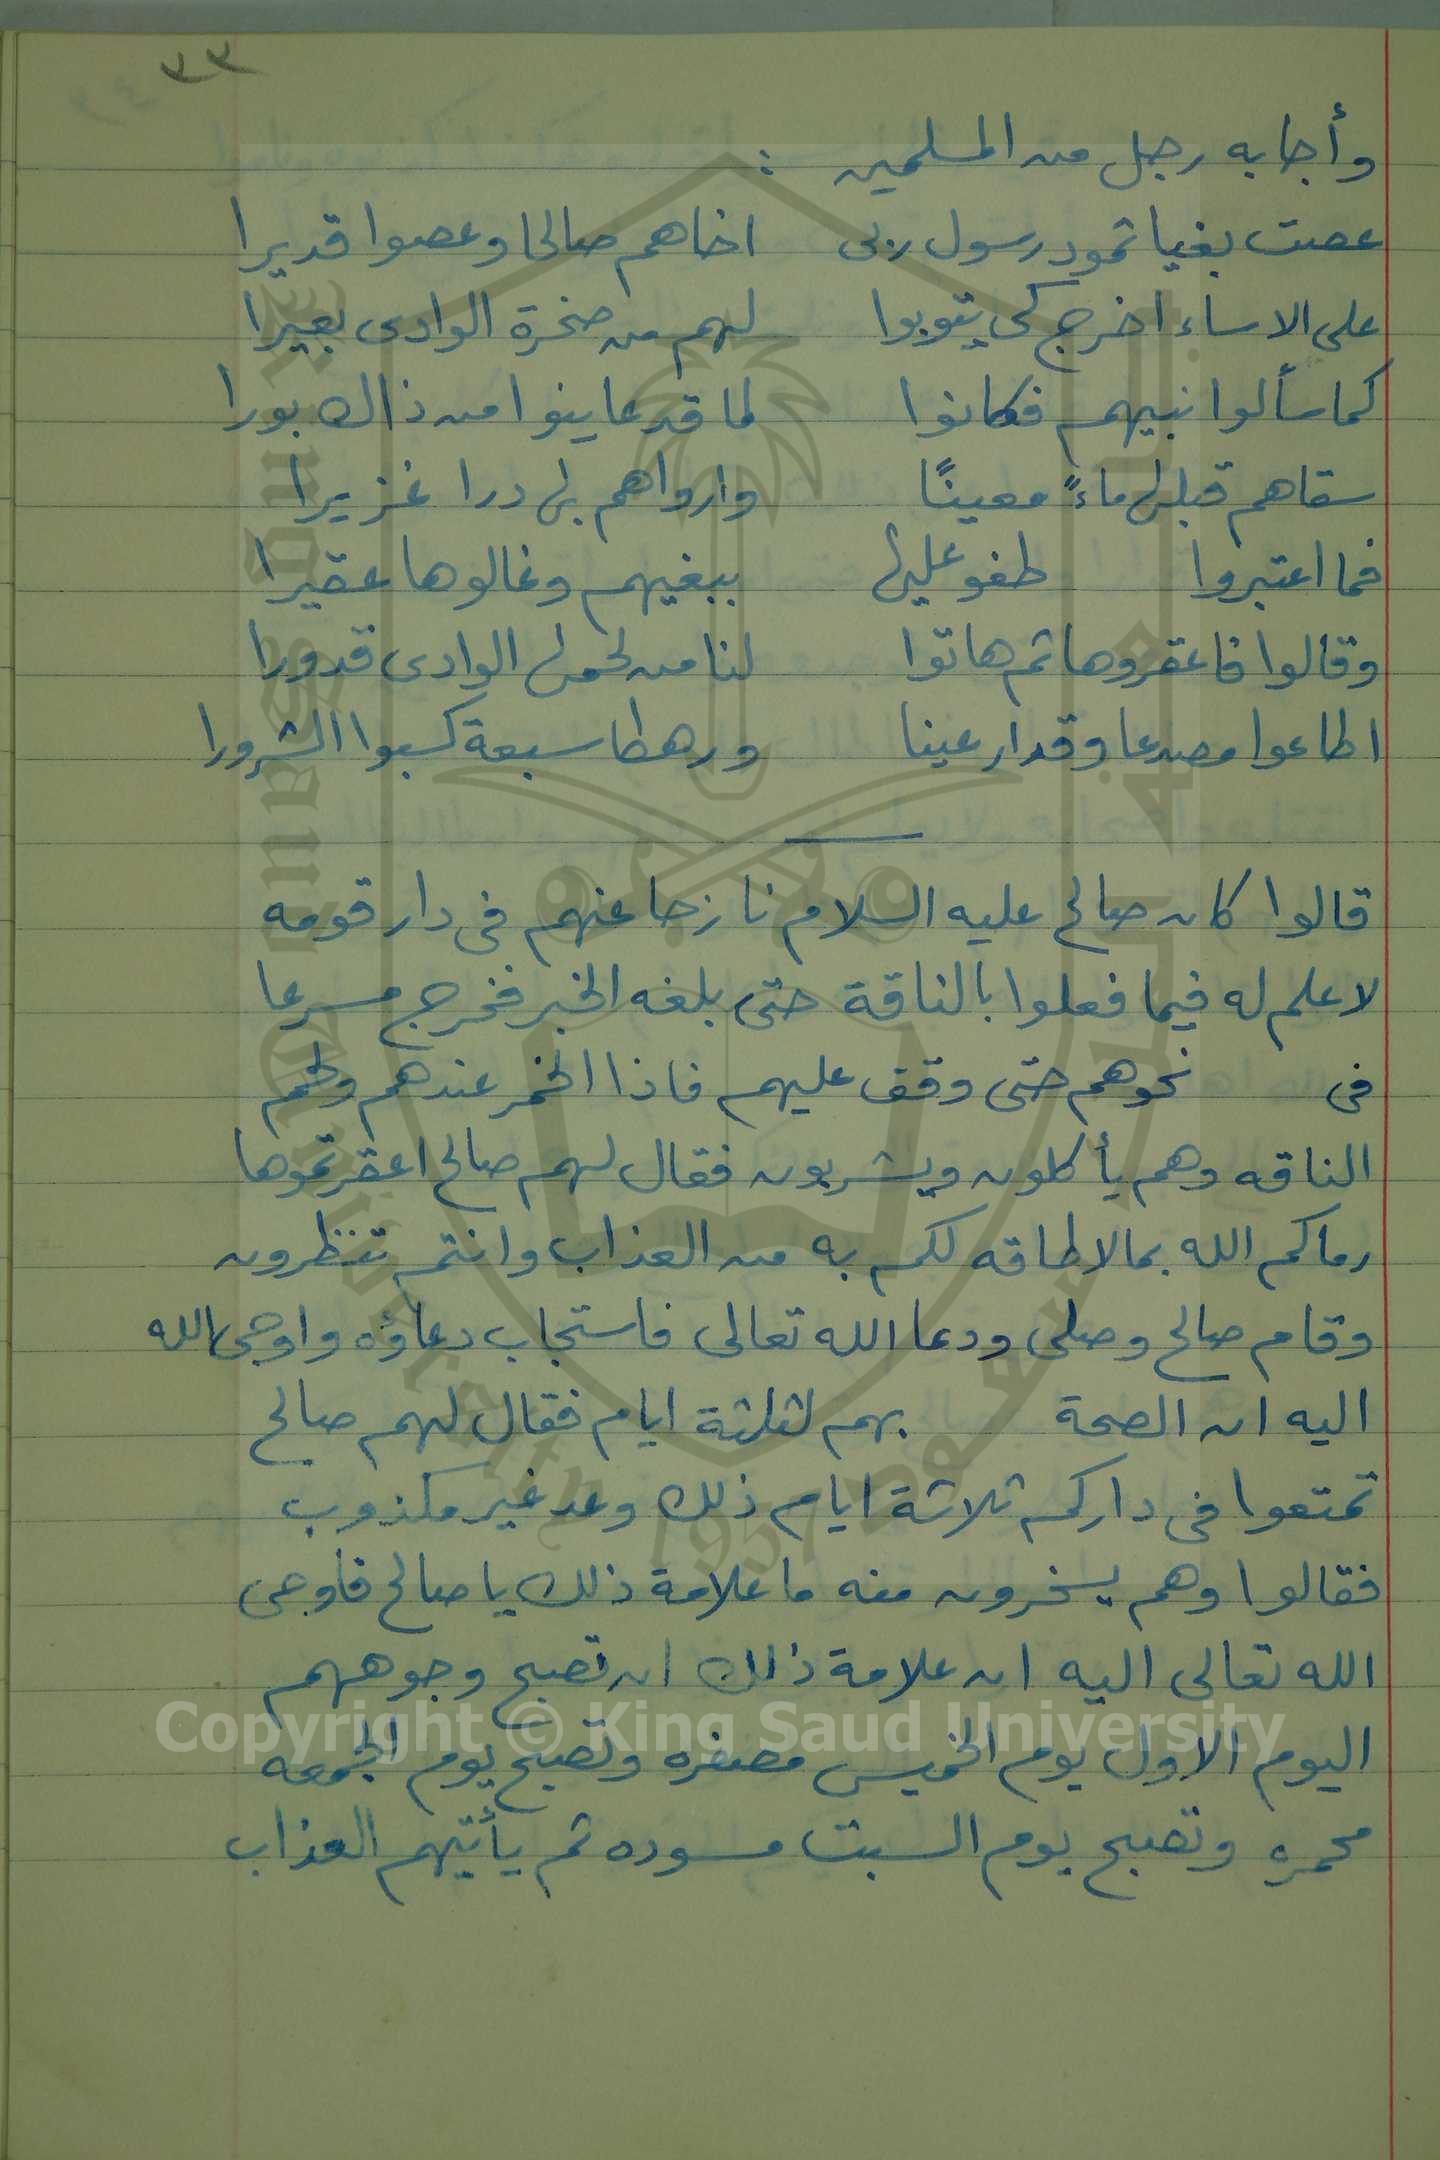 ٣٣
وأجابه رجل من المسلمين :
عصت بغيا ثمود رسول ربى اخاهم صالحا وعصوا قديرا
على الاساء اخرج كى يتوبوا لهم من صخرة الوادى بعيرا
كما سألوا نبيهم فكانوا لما قد عاينوا من ذاك بورا
سقاهم قبلها ماءً معينًا وارواهم بها درا غزيرا
فما اعتبروا طغو عليها ببغيهم وغالوها عقيرا
وقالوا فاعقروها ثم هاتوا لنا من لحمها الوادى قدورا
اطاعوا مصدعا وقدار عينا ورهطا سبعة كسبوا الشرورا
قالوا كان صالح عليه السلام نازحا عنهم فى دار قومه
لا علم له فيما فعلوا بالناقة حتى بلغه الخبر فخرج مسرعا
فى نحوهم حتى وقف عليهم فاذا الخمر عندهم ولحم
الناقه وهم يأكلون ويشربون فقال لهم صالح اعقرتموها
رماكم الله بمالا طاقه لكم به من العذاب وانتم تنظرون
وقام صالح وصلى ودعا الله تعالى فاستجاب دعاؤه واوحى الله
اليه ان الصحة بهم لثلثة ايام فقال لهم صالح
تمتعوا فى داركم ثلاثة ايام ذلك وعد غير مكذوب
فقالوا وهم يسخرون منه ما علامة ذلك يا صالح فأوحى
الله تعالى اليه ان علامة ذلك ان تصبح وجوههم
اليوم الاول يوم الخميس مصفره وتصبح يوم الجمعه
محمره وتصبح يوم السبت مسوده ثم يأتيهم العذاب
Copyright © King Saud University